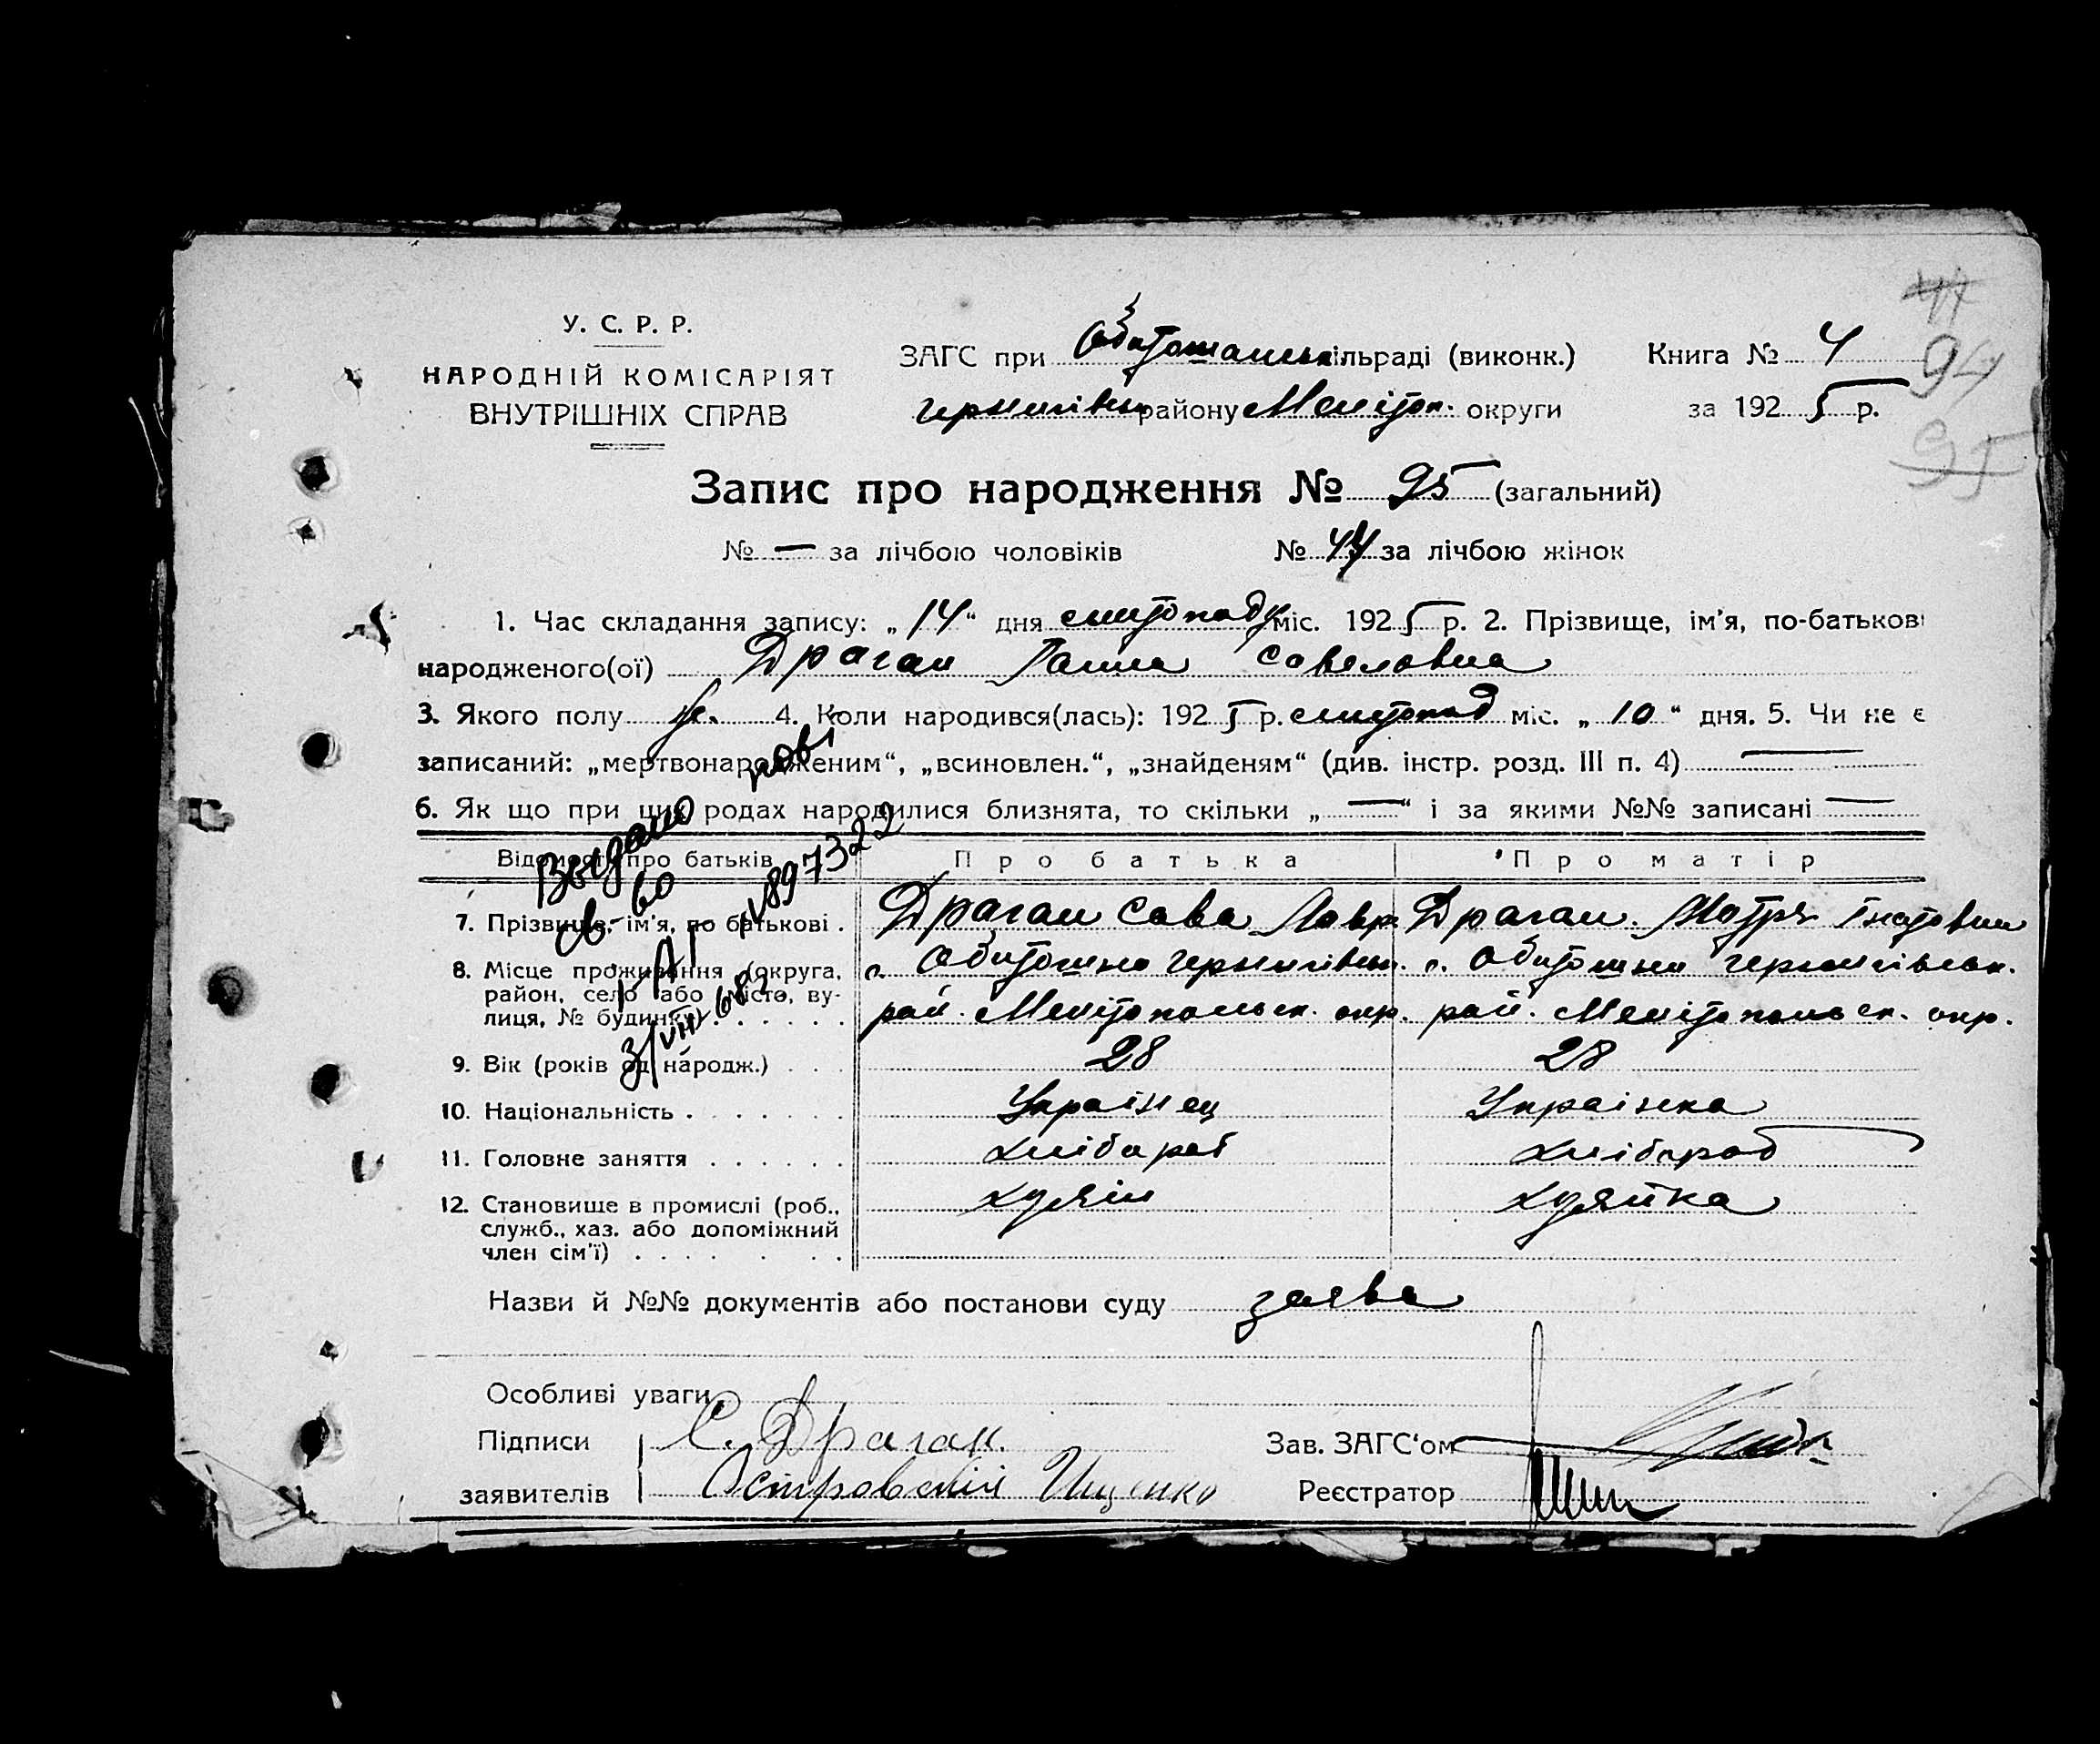 У. С. Р. Р.
НАРОДНІЙ КОМІСАРІЯТ
ВНУТРІШНІХ СПРАВ
ЗАГС при Обитошанськ. сільраді (виконк.)
Чернигівськ району Мелітоп. округи
Книга № 4
за 1925 р.
94
95
Запис про народження № 95 (загальний)
№ — за лічбою чоловіків № 44 за лічбою жінок
1. Час складання запису: „14“ дня листопаду міс. 1925 р. 2. Прізвище, ім'я, по-батькові
народженого(ої) Драган Ганна Савеловна
3. Якого полу ж. 4. Коли народився(лась): 1925 р. листопад міс. „10“ дня. 5. Чи не є
записаний: „мертвонародженим“, „всиновлен.“, „знайденям“ (див. інстр. розд. III п. 4) —
6. Як що при цих родах народилися близнята, то скільки „—“ і за якими №№ записані —
Відомості про батьків Про батька Про матір
7. Прізвище, ім'я, по батькові . Драган Сава Лавр. Драган Мотря Гнатовна
8. Місце проживання (округа, район, село або місто, вулиця, № будинку) с. Обитошне Чернигівськ. рай. Мелітопольск. окр. с. Обитошне Чернигівськ. рай. Мелітопольск. окр.
9. Вік (років од народж.) 28 28
10. Національність Украінец Украінка
11. Головне заняття хлібороб хлібороб
12. Становище в промислі (роб., служб., хаз. або допоміжний член сім'ї) хозяін хозяйка
Выдано повт
св-во
I-АП №897322
3/VIII 68
Назви й №№ документів або постанови суду заява
Особливі уваги
Підписи С. Драган.
заявителів Островский Ищенко
Зав. ЗАГС'ом
Реєстратор